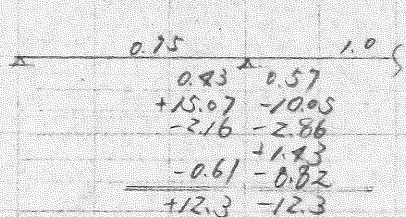 0.75 1.0
0.43 0.57
+15.07 -10.05
-2.16 -2.86
+1.43
-0.61 -0.82
+12.3 -12.3